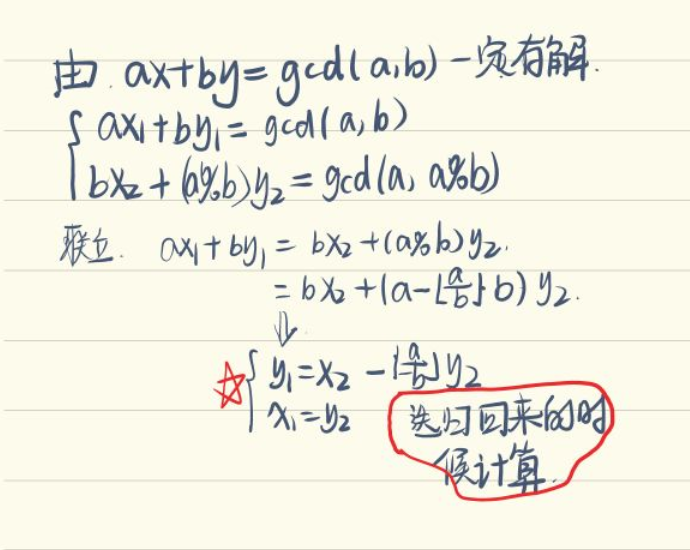 由 ax+by=gcd(a,b)一定有解.
{ ax₁+by₁=gcd(a,b)
bx₂+(a%b)y₂=gcd(a, a%b)
联立. ax₁+by₁= bx₂+(a%b)y₂.
= bx₂+(a-⌊a/b⌋b) y₂.
⇓
☆{ y₁=x₂-⌊a/b⌋y₂
x₁=y₂ 递归回来的时
候计算.